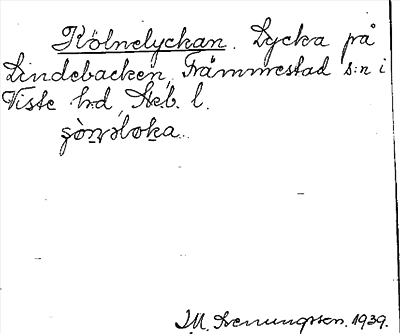 Kölnelyckan. Lycka på
Lindebacken, Främmestad s:n i
Viste hd, Skb. l.
1939.